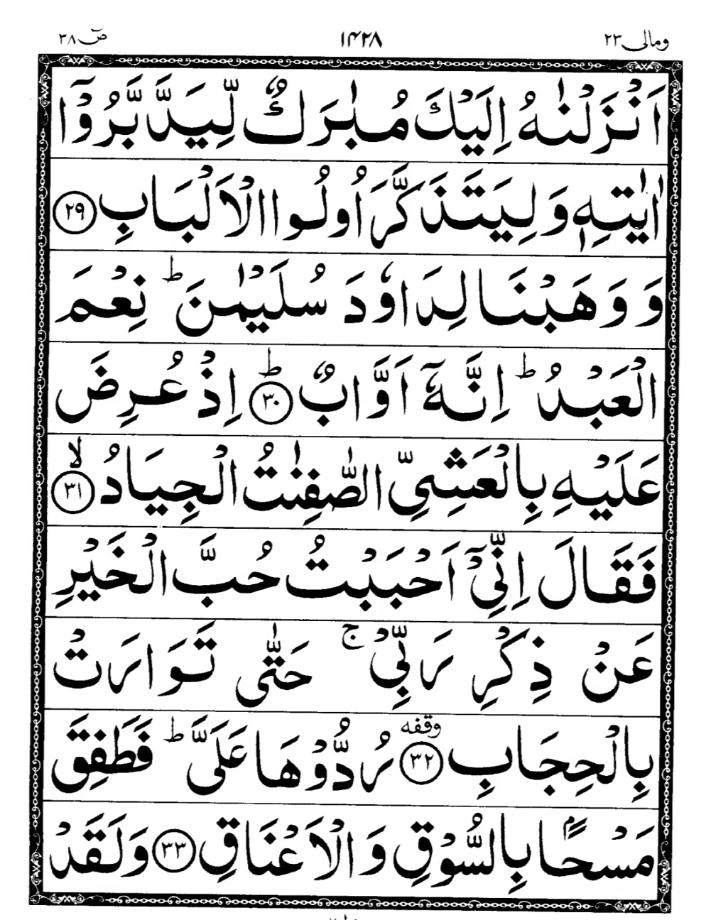 ومالی ۲۳ ۱۴۲۸ صٓ ۳۸
اَنْزَلْنٰهُ اِلَيْكَ مُبٰرَكٌ لِّيَدَّبَّرُوْۤا
اٰيٰتِهٖ وَلِيَتَذَكَّرَ اُولُوا الْاَلْبَابِ ۲۹
وَوَهَبْنَا لِدَاوٗدَ سُلَيْمٰنَ ؕ نِعْمَ
الْعَبْدُ ؕ اِنَّهٗۤ اَوَّابٌ ؕ ۳۰ اِذْ عُرِضَ
عَلَيْهِ بِالْعَشِيِّ الصّٰفِنٰتُ الْجِيَادُ ۙ ۳۱
فَقَالَ اِنِّيْۤ اَحْبَبْتُ حُبَّ الْخَيْرِ
عَنْ ذِكْرِ رَبِّيْ ۚ حَتّٰى تَوَارَتْ
بِالْحِجَابِ ۳۲ وقفه رُدُّوْهَا عَلَيَّ ؕ فَطَفِقَ
مَسْحًۢا بِالسُّوْقِ وَالْاَعْنَاقِ ۳۳ وَلَقَدْ